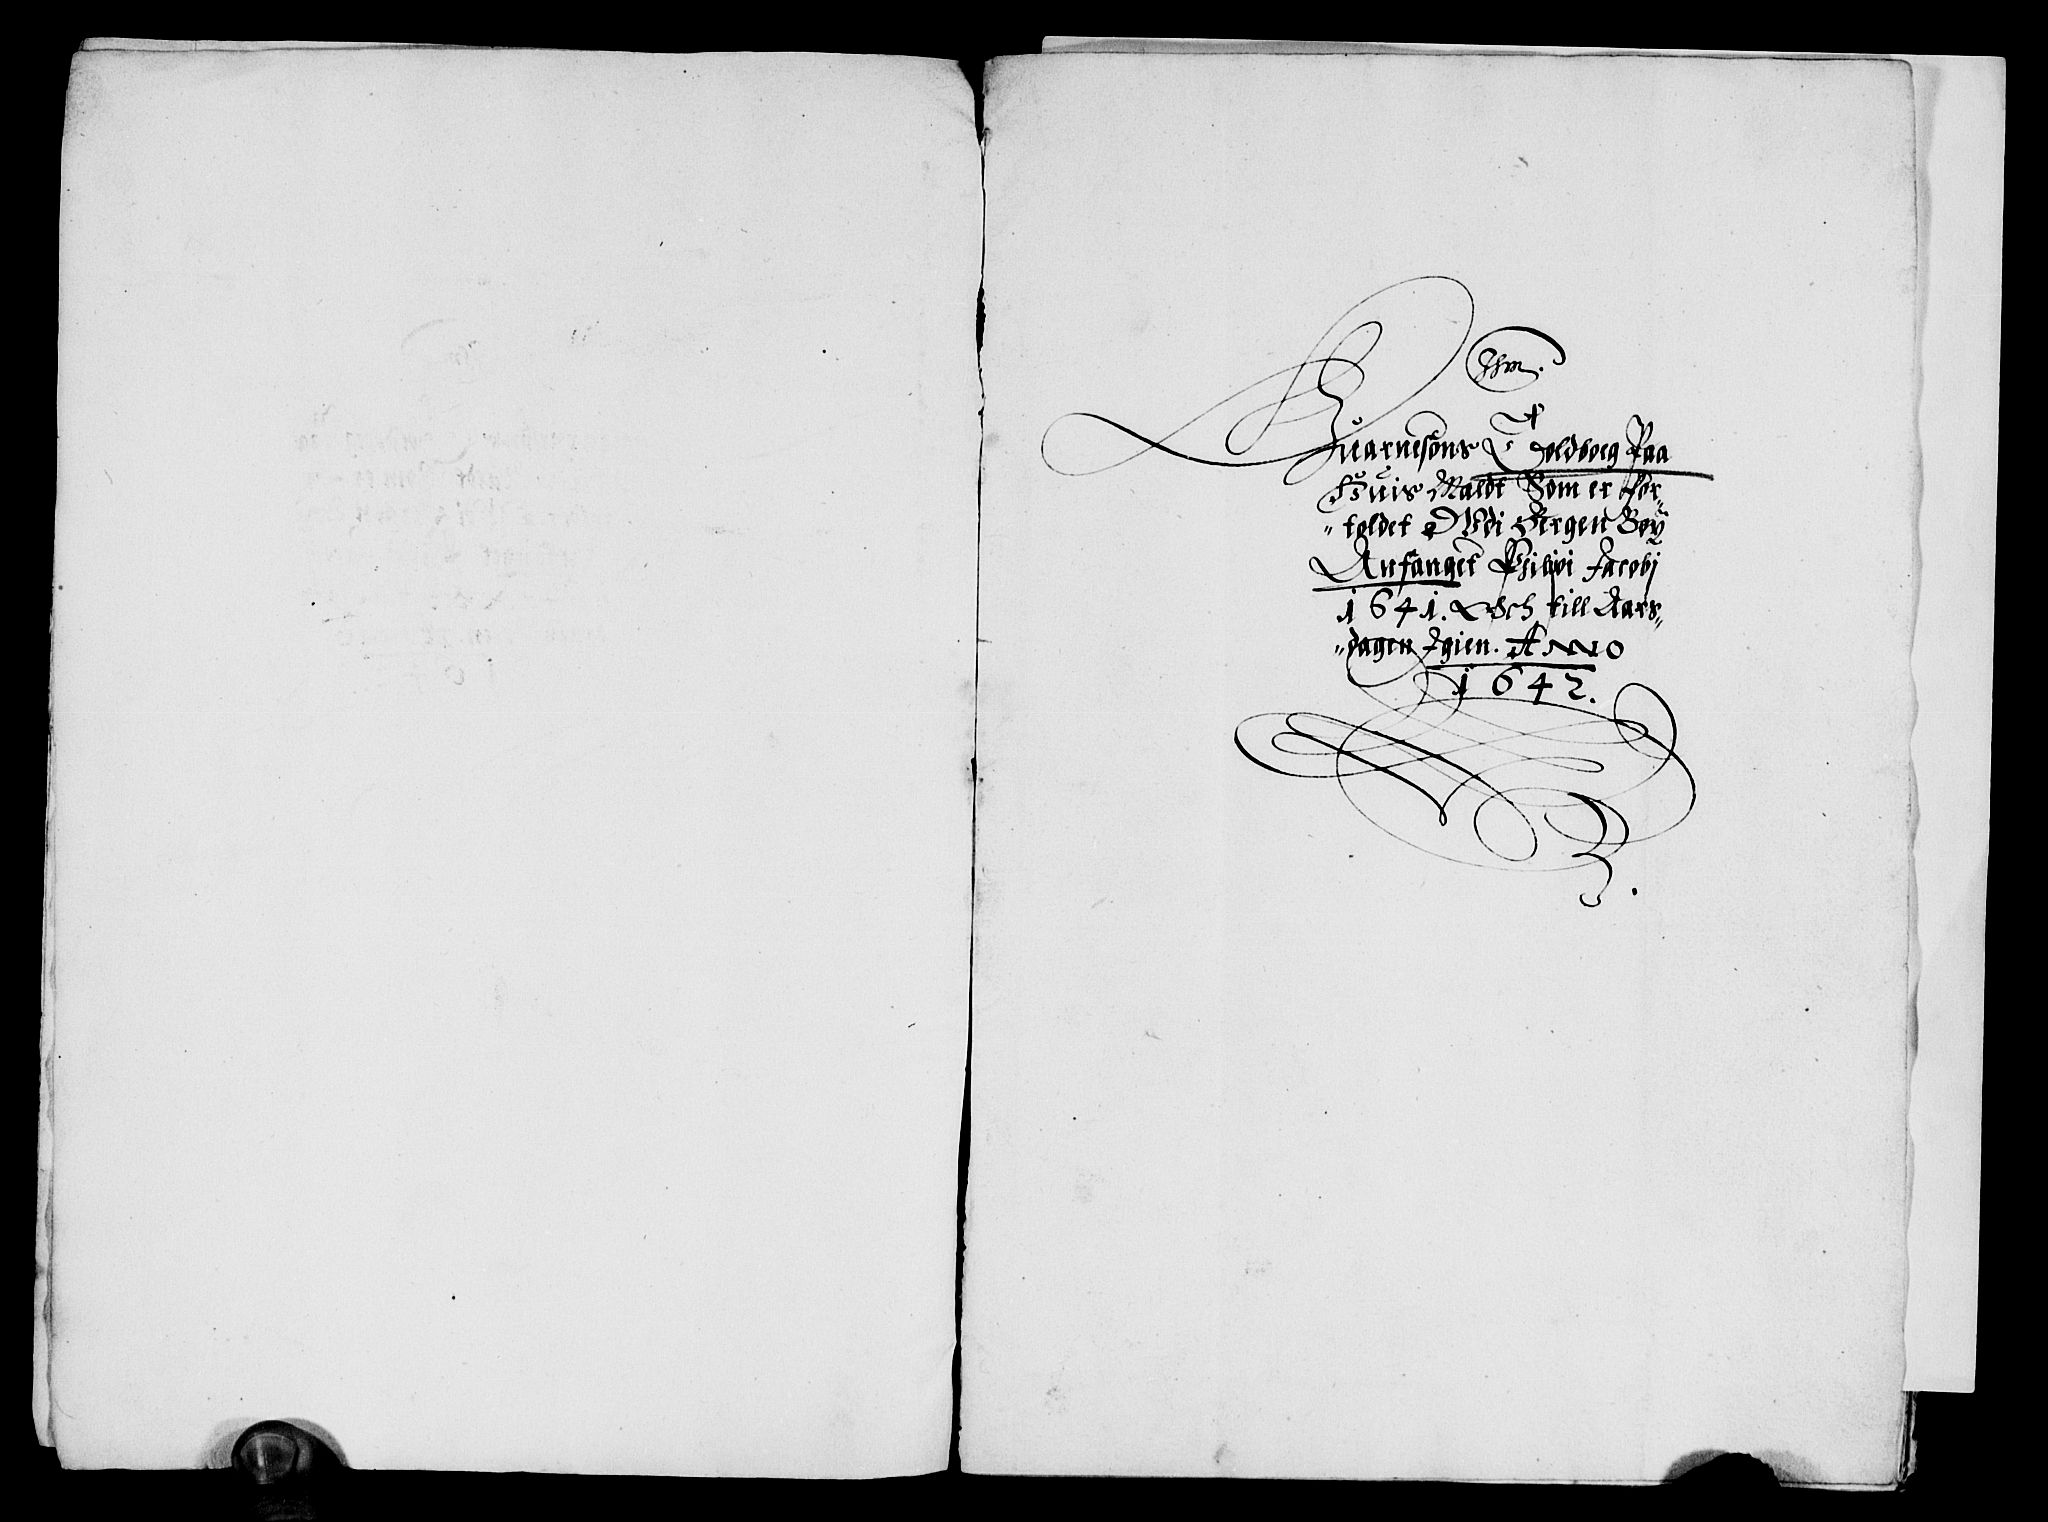 Jhm.
Quarnesons Tholdboeg Paa
Huis Maldt Som er for-
-toldet Wdi Bergen Bøy
Anfanget Philipi Jacobj
1641. Och till Aars-
-dagen Igien. Anno
1642.